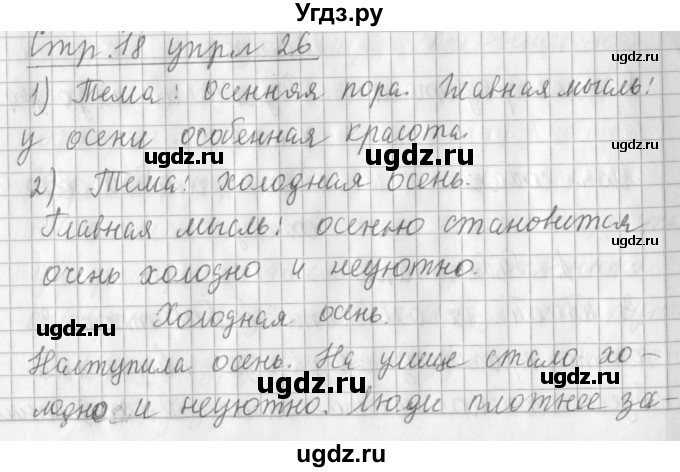 Угдз.ру
Стр. 18 упр 26
1) Тема: осенняя пора. Главная мысль:
у осени особенная красота.
2) Тема: холодная осень.
Главная мысль: осенью становится
очень холодно и неуютно.
Холодная осень.
Наступила осень. На улице стало хо-
лодно и неуютно. Люди плотнее за-
ugdz.ru
ugdz.ru
ugdz.ru
ugdz.ru
ugdz.ru
ugdz.ru
ugdz.ru
ugdz.ru
ugdz.ru
ugdz.ru
ugdz.ru
ugdz.ru